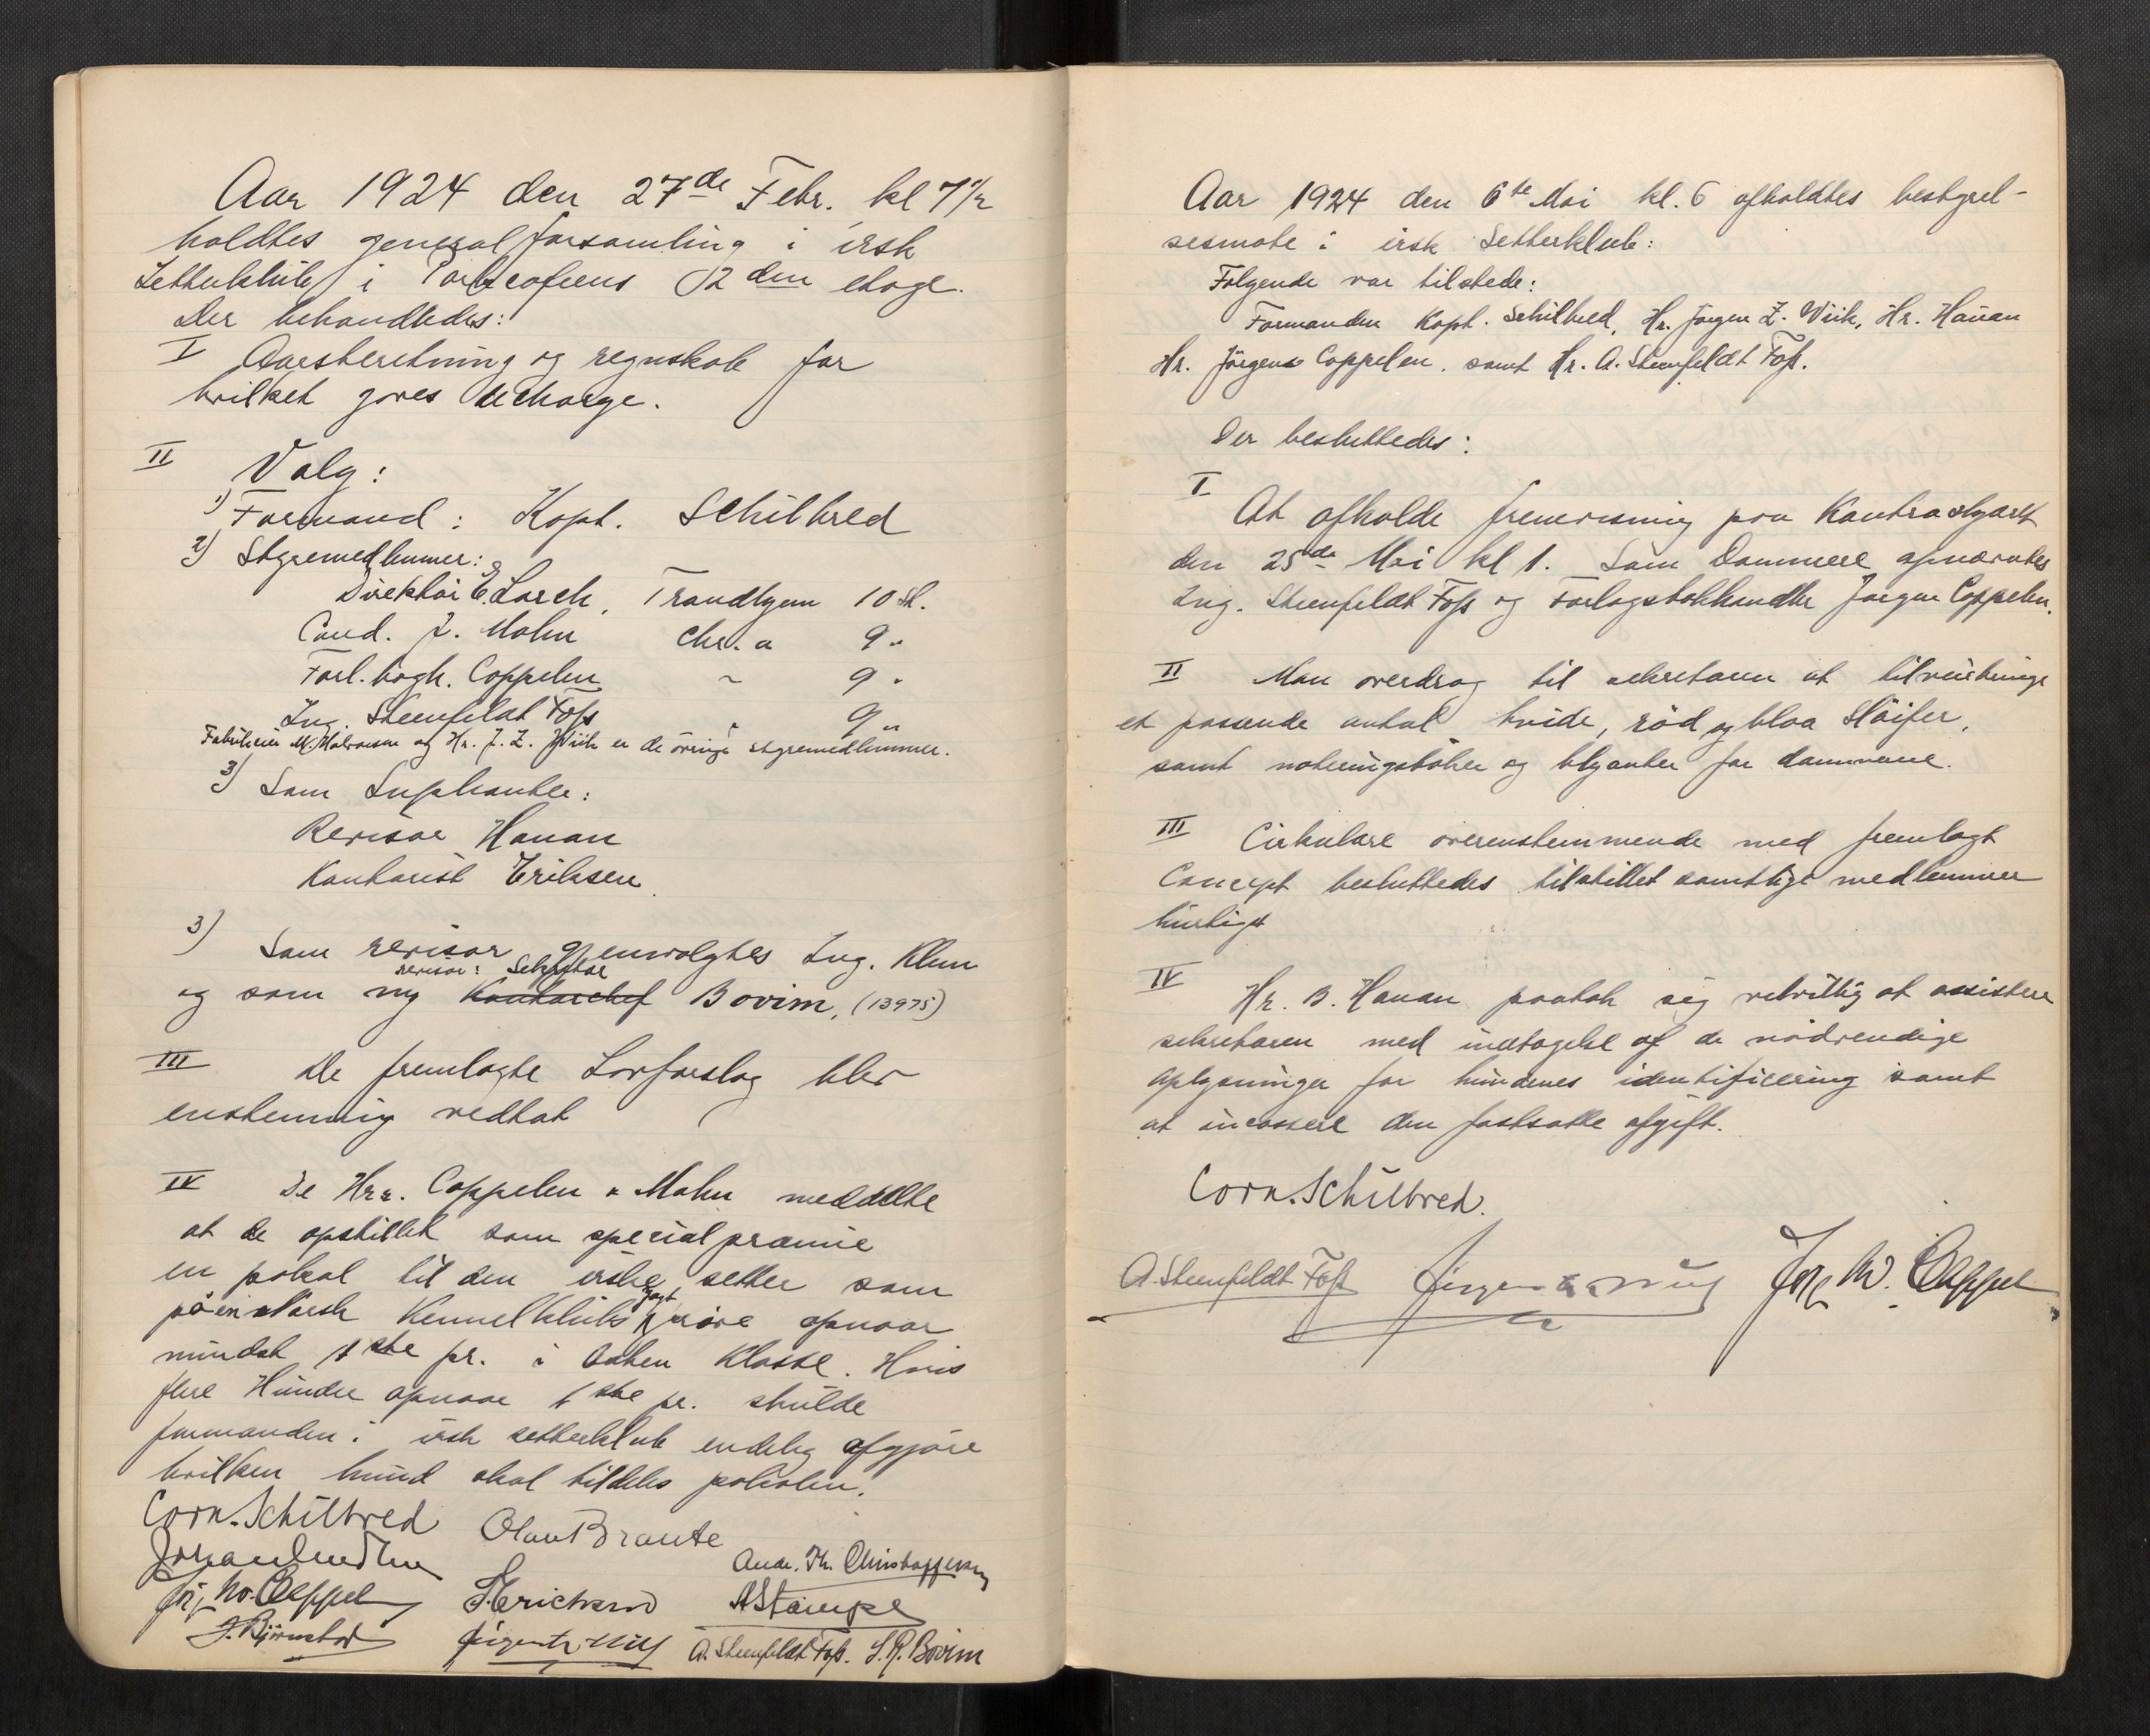 Aar 1924 den 27de Febr. kl 7½
holdtes generalforsamling i irsk
Setterklub i Parkcafeens 2den etage.
Der behandledes:
I Aarsberetning og regnskab for
hvilket gaves decharge.
II Valg:
1) Formand: Kapt. Schilbred
2) Styremedlemmer:
Direktør E. Lorck, Trondhjem 10 St.
Cand. J. Mohn Chr.a 9 "
Forl.bogh. Cappelen ~ 9 "
Ing. Steenfeldt Foss " 9 "
Fabrikeier M. Halvorsen og Hr. J. Z. Wiik er de øvrige styremedlemmer.
3) Som Suppleanter:
Revisor Hanan
Kontorist Eriksen
3) Som revisor gjenvalgtes Ing. Klem
og som ny revisor: Sekretær Kontorchef Bovim, (13975)
III De fremlagte Lovforslag blev
enstemmig vedtat
IV De Hrr. Cappelen & Mohn meddelte
at de opstillet som specialpræmie
en pokal til den irske setter som
på en Norsk Kennelklubs jagtprøve opnaar
mindst 1ste pr. i Aaben Klasse. Hvis
flere Hunde opnaar 1ste pr. skulde
formanden i irsk setterklub endelig afgjøre
hvilken hund skal tildeles pokalen.
Corn. Schilbred Olav Braute
And. Th. Christoffersen
Jørg. W. Cappelen S. Erichsen A Stampe
J. Bjørnstad Jørgen Z. Wiik A. Steenfeldt Foss. S. R. Bovim
Aar 1924 den 6te Mai kl. 6 afholdtes bestyrel-
sesmøte i irsk Setterklub:
Følgende var tilstede:
Formanden Kapt. Schilbred, Hr. Jørgen Z. Wiik, Hr. Hanan
Hr. Jørgen Cappelen. samt Hr. A. Steenfeldt Foss.
Der besluttedes:
I
At afholde fremvisning paa Kontraskjæret
den 25de Mai kl 1. Som Dommere opnævntes
Ing. Steenfeldt Foss og Forlagsbokhandler Jørgen Cappelen.
II Man overdrog til sekretæren at tilveiebringe
et passende antal hvide, rød og blaa Sløifer,
samt noteringsbøker og blyanter for dommerne.
III Cirkulære overensstemmende med fremlagt
Concept besluttedes tilstillet samtlige medlemmer
hurtigst
IV Hr. B. Hanan paatok sig velvillig at assistere
sekretæren med indtagelse af de nødvendige
oplysninger for hundenes identificering samt
at incassere den fastsatte afgift.
Corn. Schilbred.
A. Steenfeldt Foss Jørgen Z. Wiik Jørg W. Cappelen